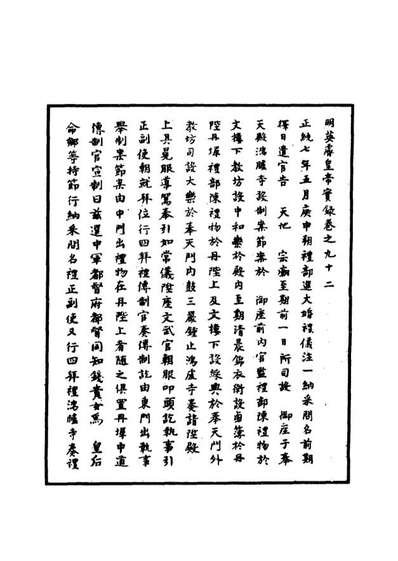 明英宗睿皇帝實錄卷之九十二
正統七年五月庚申朔禮部進大婚禮儀注一納采問名前期
擇日遣官告　天地　宗廟至期前一日所司設　御座于奉
天殿鴻臚寺設制案節案於　御座前內官監禮部陳禮物於
文樓下教坊設中和樂於殿內至期清晨錦衣衛設鹵簿於丹
陛丹墀禮部陳禮物於丹陛上及文樓下設綵輿於奉天門外
教坊司設大樂於奉天門內鼓三嚴鐘止鴻臚寺奏請陞殿
上具冕服導駕奉引如常儀陞座文武官朝服叩頭訖執事引
正副使朝就拜位行四拜禮傳制官奏傳制訖由東門出執事
舉制案節案由中門出禮物在丹陛上者隨之俱置丹墀中道
傳制官宣制曰茲選中軍都督府都督同知錢貴女為　皇后
命卿等持節行納采問名禮正副使又行四拜禮鴻臚寺奏禮